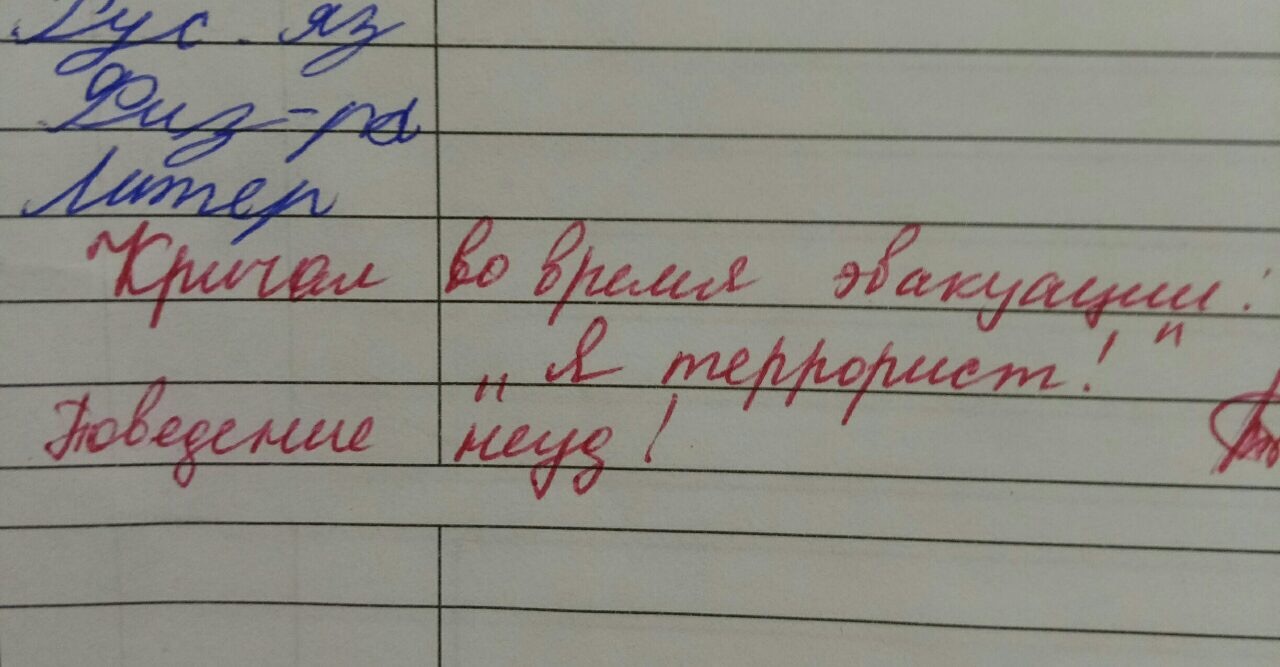 Рус. яз
Физ-ра
Литер
Кричал во время эвакуации:
„Я террорист!"
Поведение неуд!